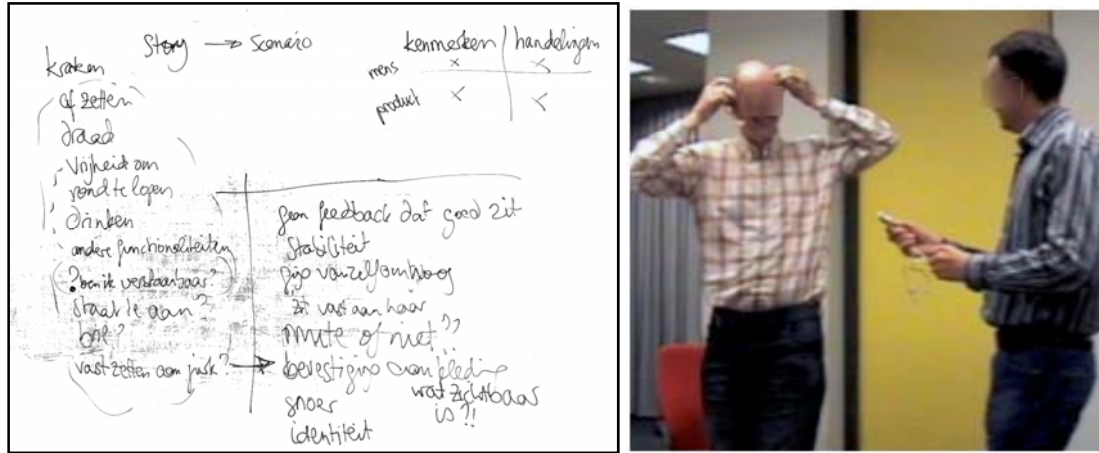 Story → Scenario
kenmerken | handelingen
mens x x
product x x
kraken
af zetten
draad
- Vrijheid om
rond te lopen
drinken
andere functionaliteiten
? ben ik verstaanbaar?
staat ie aan?
vast zetten aan jurk? →
geen feedback dat goed zit
Stabiliteit
ging vanzelf omhoog
zit vast aan haar
mute of niet??
bevestiging aan kleding
wat zichtbaar
is?!
snoer
identiteit